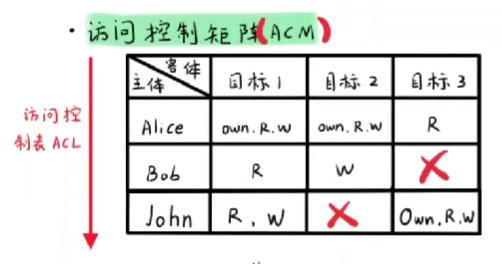 · 访问控制矩阵(ACM)
访问控
制表ACL
客体
主体 目标1 目标2 目标3
Alice own.R.W own.R.W R
Bob R W X
John R,W X Own.R.W